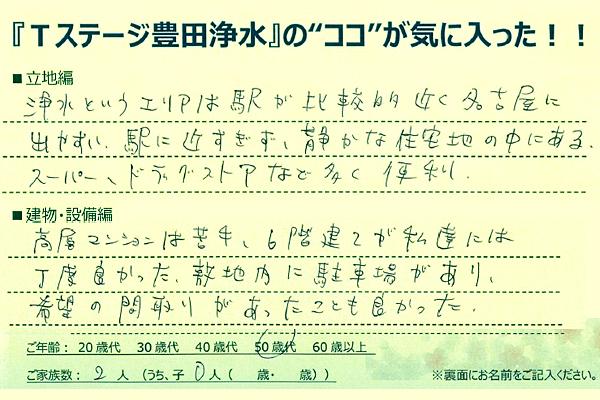 『Tステージ豊田浄水』の“ココ”が気に入った！！
■立地編
浄水というエリアは駅が比較的近く名古屋に
出やすい。駅に近すぎず、静かな住宅地の中にある。
スーパー、ドラッグストアなど多く便利。
■建物・設備編
高層マンションは苦手、6階建てが私達には
丁度良かった。敷地内に駐車場があり、
希望の間取りがあったことも良かった。
ご年齢： 20歳代 30歳代 40歳代 50歳代 60歳以上
ご家族数： 2 人 （うち、子 0 人（ 歳・ 歳））
※裏面にお名前をご記入ください。